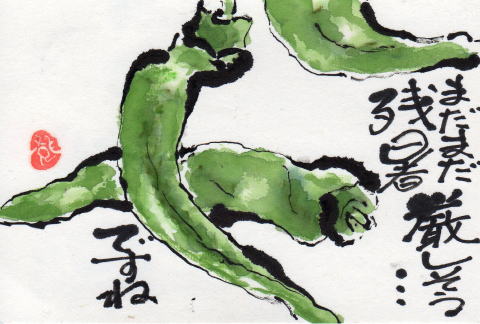 まだまだ
残暑
厳しそう…
ですね